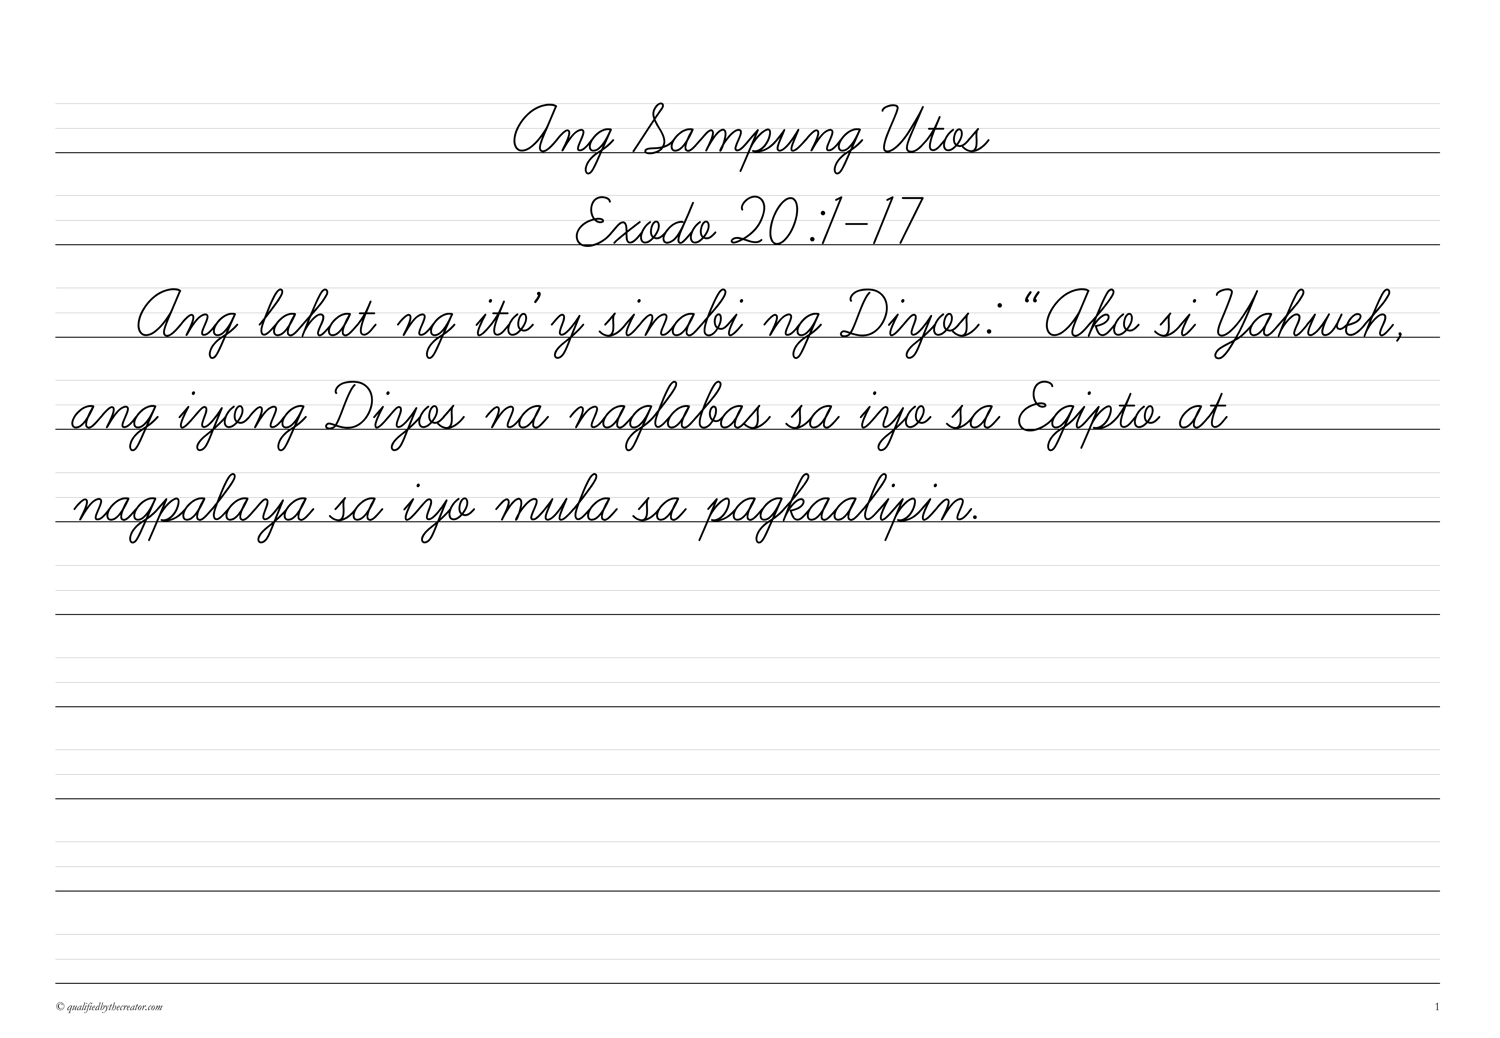 Ang Sampung Utos
Exodo 20:1-17
Ang lahat ng ito'y sinabi ng Diyos: “Ako si Yahweh,
ang iyong Diyos na naglabas sa iyo sa Egipto at
nagpalaya sa iyo mula sa pagkaalipin.
© qualifiedbythecreator.com
1